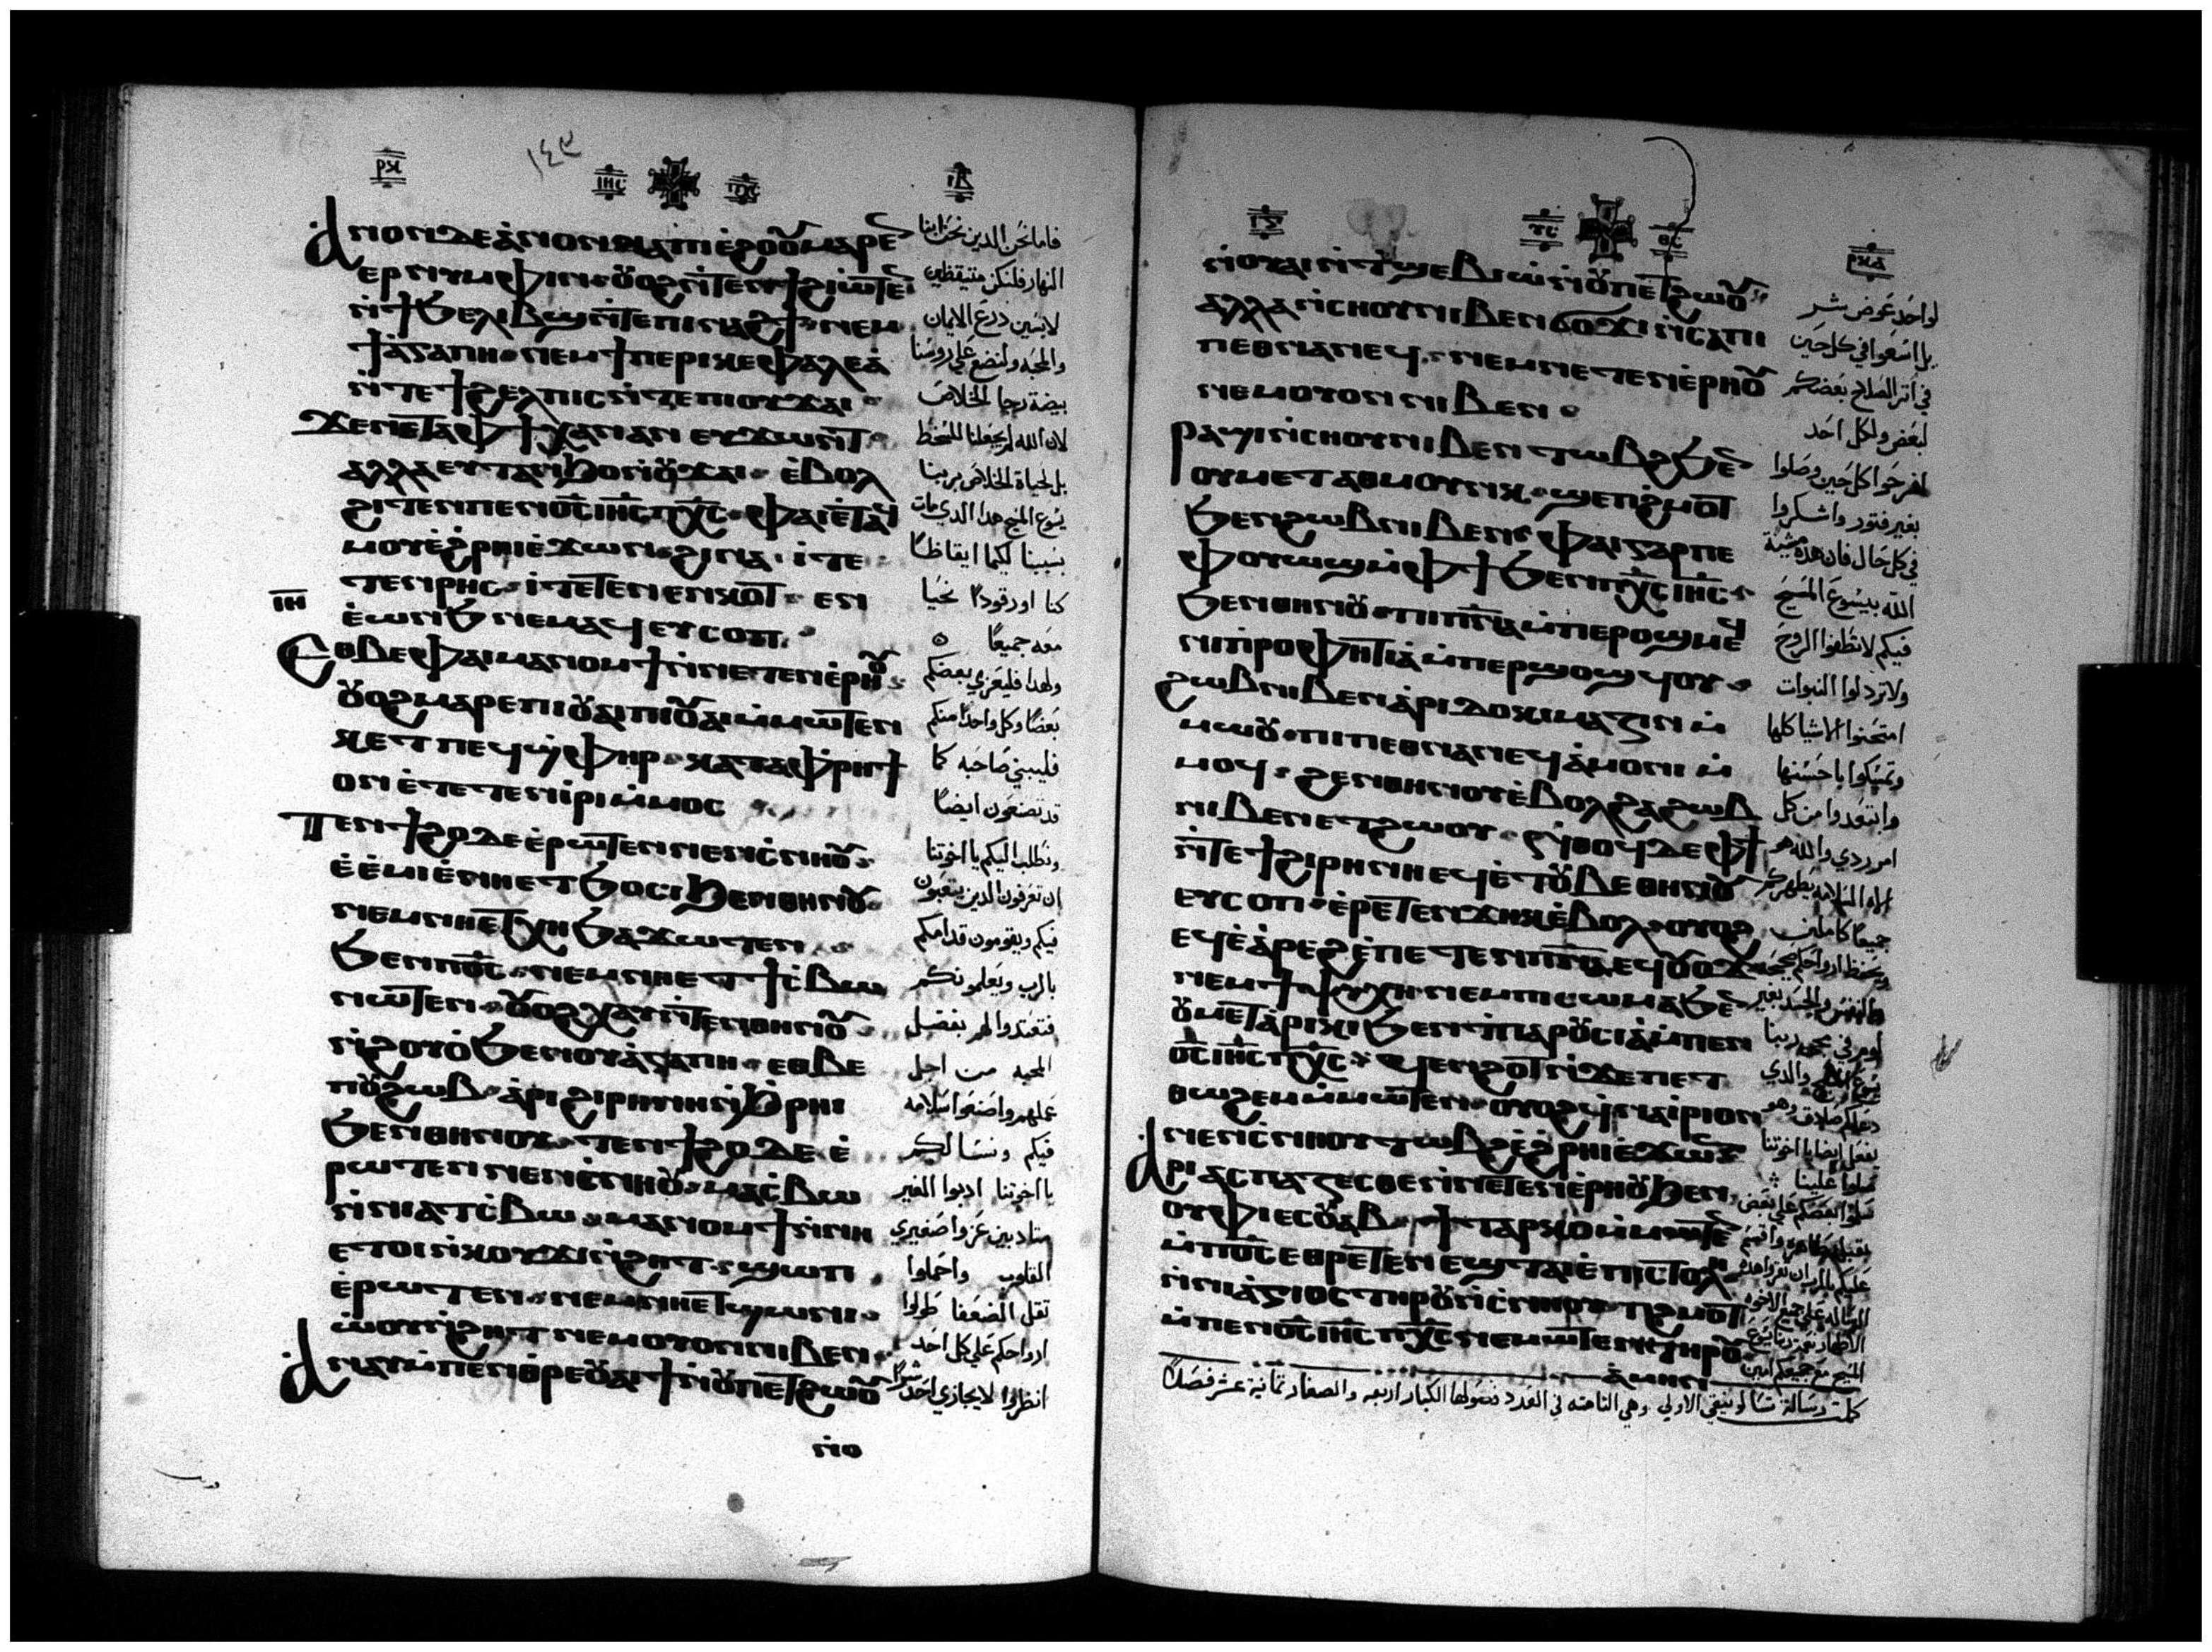 ⲣⲕ
١٤٣
ⲓⲏⲥ ⲡⲭⲥ
ⲓⲃ
ⲁⲛⲟⲛ ⲇⲉ ⲁⲛⲟⲛ ⲛⲁ ⲡⲓⲉϩⲟⲟⲩ ⲙⲁⲣⲉⲛ
ⲉⲣⲛⲩⲙⲫⲓⲛ ⲟⲩⲟϩ ⲛⲧⲉⲛϯ ϩⲓⲱⲧⲉⲛ
ⲛϯϧⲉⲗⲓⲃϣ ⲛⲧⲉ ⲡⲓⲛⲁϩϯ ⲛⲉⲙ
ϯⲁⲅⲁⲡⲏ ⲛⲉⲙ ϯⲡⲉⲣⲓⲕⲉⲫⲁⲗⲉⲁ
ⲛⲧⲉ ϯϩⲉⲗⲡⲓⲥ ⲛⲧⲉ ⲡⲓⲟⲩϫⲁⲓ
ϫⲉ ⲛⲉⲧⲁ ⲫϯ ⲭⲁⲛ ⲁⲛ ⲉⲩϫⲱⲛⲧ
ⲁⲗⲗⲁ ⲉⲩⲧⲁⲛϧⲟ ⲛⲟⲩϫⲁⲓ ⲉⲃⲟⲗ
ϩⲓⲧⲉⲛ ⲡⲉⲛⲟⲥ ⲓⲏⲥ ⲡⲭⲥ ⲫⲁⲓ ⲉⲧⲁϥ
ⲙⲟⲩ ⲉϩⲣⲏⲓ ⲉϫⲱⲛ ϩⲓⲛⲁ ⲓⲧⲉ
ⲧⲉⲛⲣⲏⲥ ⲓⲧⲉ ⲧⲉⲛⲉⲛⲕⲟⲧ ⲉⲛ
ⲓⲏ
ⲉⲱⲛϧ ⲛⲉⲙⲁϥ ⲉⲩⲥⲟⲡ
ⲉⲑⲃⲉ ⲫⲁⲓ ⲙⲁⲛⲟⲙϯ ⲛⲛⲉⲧⲉⲛⲉⲣⲏⲟⲩ
ⲟⲩⲟϩ ⲙⲁⲣⲉ ⲡⲓⲟⲩⲁⲓ ⲡⲓⲟⲩⲁⲓ ⲙⲙⲱⲧⲉⲛ
ⲕⲉⲧ ⲡⲉϥϣⲫⲏⲣ ⲕⲁⲧⲁ ⲫⲣⲏϯ
ⲟⲛ ⲉⲧⲉⲧⲉⲛⲓⲣⲓ ⲙⲙⲟⲥ
ⲧⲉⲛϯϩⲟ ⲇⲉ ⲉⲣⲱⲧⲉⲛ ⲛⲉⲛⲥⲛⲏⲟⲩ
ⲉⲉⲙⲓ ⲉⲛⲏⲉⲧϧⲟⲥⲓ ϧⲉⲛ ⲑⲏⲛⲟⲩ
ⲛⲉⲙ ⲛⲏⲉⲧⲭⲏ ϧⲁϫⲱⲧⲉⲛ
ϧⲉⲛ ⲡⲟⲥ ⲛⲉⲙ ⲛⲏⲉⲧϯⲥⲃⲱ
ⲛⲱⲧⲉⲛ ⲟⲩⲟϩ ⲭⲁⲥ ⲛⲧⲉⲛⲑⲏⲛⲟⲩ
ⲛϩⲟⲩⲟ ϧⲉⲛ ⲟⲩⲁⲅⲁⲡⲏ ⲉⲑⲃⲉ
ⲡⲟⲩϩⲱⲃ ⲁⲣⲓ ϩⲓⲣⲏⲛⲏ ⲛϧⲣⲏⲓ
ϧⲉⲛ ⲑⲏⲛⲟⲩ ⲧⲉⲛϯϩⲟ ⲇⲉ ⲉ
ⲣⲱⲧⲉⲛ ⲛⲉⲛⲥⲛⲏⲟⲩ ⲙⲁⲥⲃⲱ
ⲛⲛⲓⲁⲧⲥⲃⲱ ⲙⲁⲛⲟⲙϯ ⲛⲛⲏ
ⲉⲧⲟⲓ ⲛⲕⲟⲩϫⲓ ⲛϩⲏⲧ ϣⲱⲡ
ⲉⲣⲱⲧⲉⲛ ⲛⲉⲙ ⲛⲏⲉⲧϣⲱⲛⲓ
ⲱⲟⲩⲛϩⲏⲧ ⲛⲉⲙ ⲟⲩⲟⲛ ⲛⲓⲃⲉⲛ
ⲁⲛⲁⲩ ⲙⲡⲉⲛⲑⲣⲉ ⲟⲩⲁⲓ ϯ ⲛⲟⲩⲡⲉⲧϩⲱⲟⲩ
ⲛⲟ
فاما نحن الدين نحن ابنا
النهار فلنكن متيقظين
لابسين درع الايمان
والمحبه ولنضع علي روسنا
بيضة رجا الخلاص
لان الله لم يجعلنا للسخط
بل لحياة الخلاص بربنا
يسوع المسيح هدا الدي مات
بسببنا ليكما ايقاظا
كنا او رقودا نحيا
معه جميعا
ولهدا فليعزي بعضكم
بعضا وكل واحد منكم
فليبني صاحبه كما
قد تصنعون ايضا
ونطلب اليكم يا اخوتنا
ان تعرفون الدين يتعبون
فيكم ويقومون قدامكم
بالرب ويعلمونكم
فتعتدوا لهم بفضل
المحبه من اجل
عملهم واصنعوا سلامه
فيكم ونسالكم
يا اخوتنا ادبوا الغير
متادبين عزوا صغيري
القلوب واحملوا
ثقل الضعفا طولوا
ارواحكم علي كل احد
انظروا لا يجازي احد شرا
ⲓⲅ
ⲩⲥ ⲑⲥ
ⲣⲕⲁ
ⲛⲟⲩⲁⲓ ⲛⲧϣⲉⲃⲓⲱ ⲛⲟⲩⲡⲉⲧϩⲱⲟⲩ
ⲁⲗⲗⲁ ⲛⲥⲏⲟⲩ ⲛⲓⲃⲉⲛ ϭⲟϫⲓ ⲛⲥⲁ ⲡⲓ
ⲡⲉⲑⲛⲁⲛⲉϥ ⲛⲉⲙ ⲛⲉⲧⲉⲛⲉⲣⲏⲟⲩ
ⲛⲉⲙ ⲟⲩⲟⲛ ⲛⲓⲃⲉⲛ
ⲣⲁϣⲓ ⲛⲥⲏⲟⲩ ⲛⲓⲃⲉⲛ ⲧⲱⲃϩ ϧⲉⲛ
ⲟⲩⲙⲉⲧⲁⲑⲙⲟⲩⲛⲕ ϣⲉⲡϩⲙⲟⲧ
ϧⲉⲛ ϩⲱⲃ ⲛⲓⲃⲉⲛ ⲫⲁⲓ ⲅⲁⲣ ⲡⲉ
ⲫⲟⲩⲱϣ ⲙⲫϯ ϧⲉⲛ ⲡⲭⲥ ⲓⲏⲥ
ϧⲉⲛ ⲑⲏⲛⲟⲩ ⲡⲓⲡⲛⲁ ⲙⲡⲉⲣⲟϣⲙⲉϥ
ⲛⲓⲡⲣⲟⲫⲏⲧⲓⲁ ⲙⲡⲉⲣϣⲟϣϥⲟⲩ
ϩⲱⲃ ⲛⲓⲃⲉⲛ ⲁⲣⲓⲇⲟⲕⲓⲙⲁⲍⲓⲛ ⲙ
ⲙⲱⲟⲩ ⲡⲓⲡⲉⲑⲛⲁⲛⲉϥ ⲁⲙⲟⲛⲓ ⲙ
ⲙⲟϥ ϩⲉⲛ ⲑⲏⲛⲟⲩ ⲉⲃⲟⲗ ϩⲁ ϩⲱⲃ
ⲛⲓⲃⲉⲛ ⲉⲧϩⲱⲟⲩ ⲛⲑⲟϥ ⲇⲉ ⲫϯ
ⲛⲧⲉ ϯϩⲓⲣⲏⲛⲏ ⲉϥⲉⲧⲟⲩⲃⲉ ⲑⲏⲛⲟⲩ
ⲉⲩⲥⲟⲡ ⲉⲣⲉⲧⲉⲛϫⲏⲕ ⲉⲃⲟⲗ ⲟⲩⲟϩ
ⲉϥⲉⲁⲣⲉϩ ⲉⲡⲉⲧⲉⲛⲡⲛⲁ ⲉϥⲟⲩⲟϫ
ⲛⲉⲙ ϯⲯⲩⲭⲏ ⲛⲉⲙ ⲡⲓⲥⲱⲙⲁ ϧⲉⲛ
ⲟⲩⲙⲉⲧⲁⲣⲓⲕⲓ ϧⲉⲛ ⲧⲡⲁⲣⲟⲩⲥⲓⲁ ⲙⲡⲉⲛ
ⲟⲥ ⲓⲏⲥ ⲡⲭⲥ ϥⲉⲛϩⲟⲧ ⲛϫⲉ ⲡⲉⲧ
ⲑⲱϩⲉⲙ ⲙⲙⲱⲧⲉⲛ ⲟⲩⲟϩ ϥⲛⲁⲓⲣⲓ ⲟⲛ
ⲛⲉⲛⲥⲛⲏⲟⲩ ⲧⲱⲃϩ ⲉϩⲣⲏⲓ ⲉϫⲱⲛ
ⲁⲣⲓⲁⲥⲡⲁⲍⲉⲥⲑⲉ ⲛⲛⲉⲧⲉⲛⲉⲣⲏⲟⲩ ϧⲉⲛ
ⲟⲩⲫⲓ ⲉⲥⲟⲩⲁⲃ ϯⲧⲁⲣⲕⲟ ⲙⲙⲱⲧⲉⲛ
ⲙⲡⲟⲥ ⲉⲑⲣⲉⲧⲉⲛⲉϣ ⲧⲁⲓⲉⲡⲓⲥⲧⲟⲗⲏ
ⲛⲛⲓⲁⲅⲓⲟⲥ ⲧⲏⲣⲟⲩ ⲛⲥⲛⲏⲟⲩ ⲡϩⲙⲟⲧ
ⲙⲡⲉⲛⲟⲥ ⲓⲏⲥ ⲡⲭⲥ ⲛⲉⲙⲱⲧⲉⲛ ⲧⲏⲣⲟⲩ
ⲁⲙⲏⲛ
لواحد عوض شر
بل اسعوا في كل حين
في اثر الصلاح بعضكم
لبعض ولكل احد
افرحوا كل حين وصلوا
بغير فتور واشكروا
في كل حال فان هده مشية
الله بيسوع المسيح
فيكم لا تطفوا الروح
ولا تردلوا النبوات
امتحنوا الاشيا كلها
وتمسكوا باحسنها
وابتعدوا من كل
امر ردي والله هو
اله السلامه يطهركم
جميعا كاملين
ويحفظ ارواحكم صحيحه
والنفس والجسد بغير
لوم في مجي ربنا
يسوع المسيح والدي
دعاكم صادق وهو
يفعل ايضا يا اخوتنا
صلوا علينا
سلموا بعضكم علي بعض
المسيح مع جميعكم امين
كملت رسالة تسالونيقي الاولي وهي الثامنه في العدد فصولها الكبار اربعه والصغار ثمانية عشر فصلا